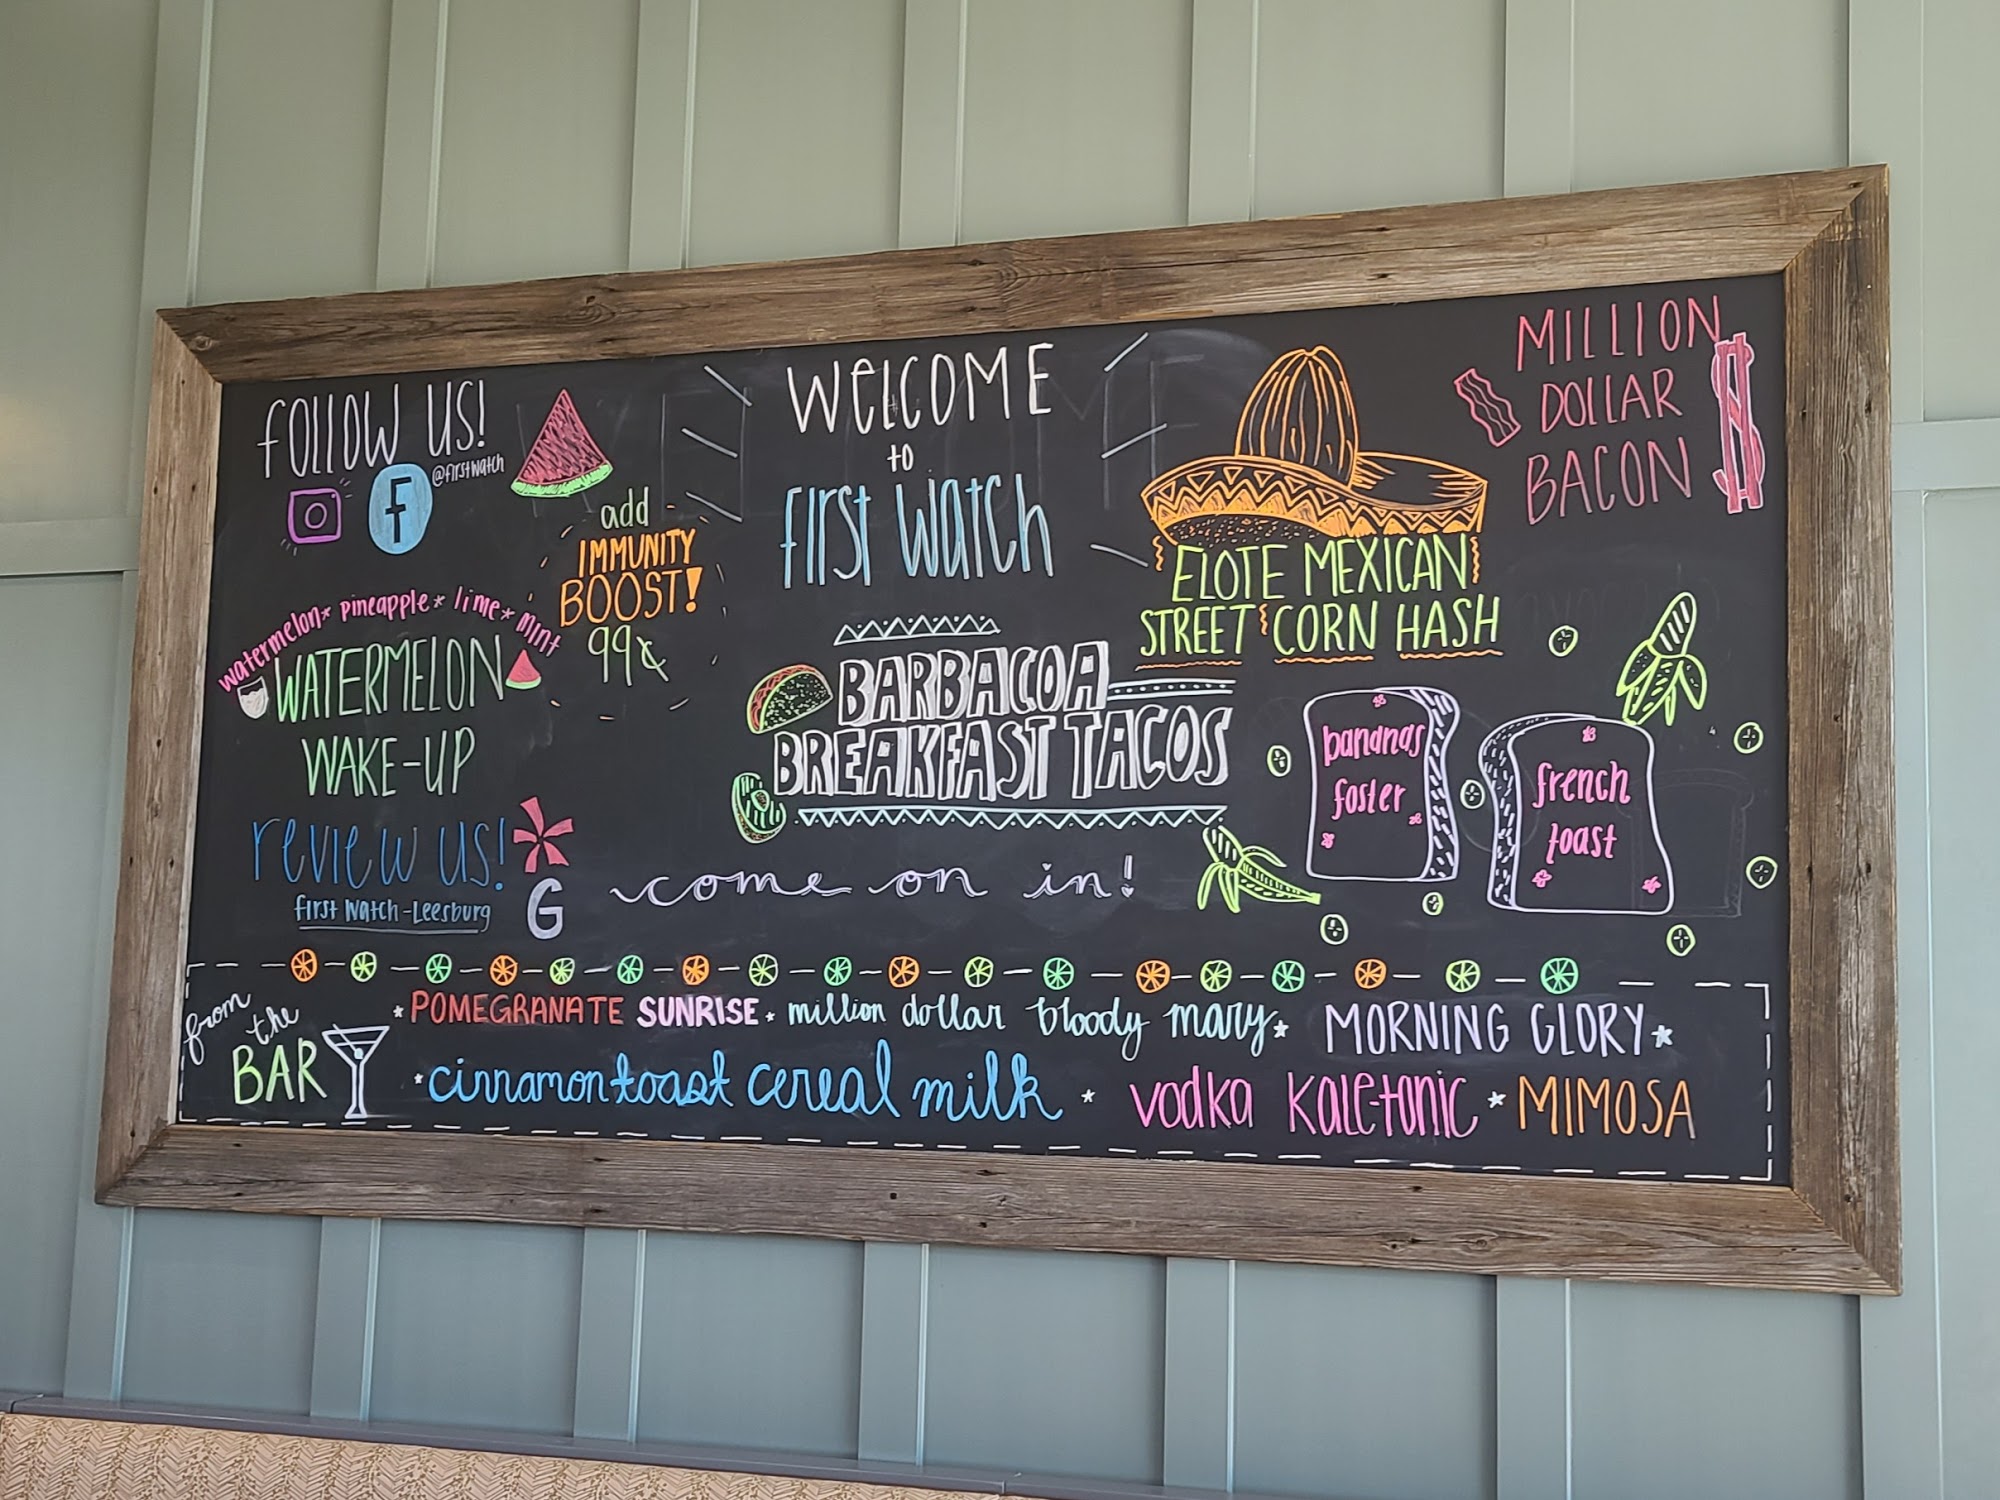 FOLLOW US!
@firstwatch
F
add
IMMUNITY
BOOST!
99¢
watermelon * pineapple * lime * mint
WATERMELON
WAKE-UP
review us!
First Watch - Leesburg
G
WELCOME
to
First Watch
BARBACOA
BREAKFAST TACOS
come on in!
ELOTE MEXICAN
STREET CORN HASH
MILLION
DOLLAR
BACON
bananas
foster
french
toast
from
the
BAR
* POMEGRANATE SUNRISE * million dollar bloody mary * MORNING GLORY *
* cinnamon toast cereal milk * vodka kale-tonic * MIMOSA